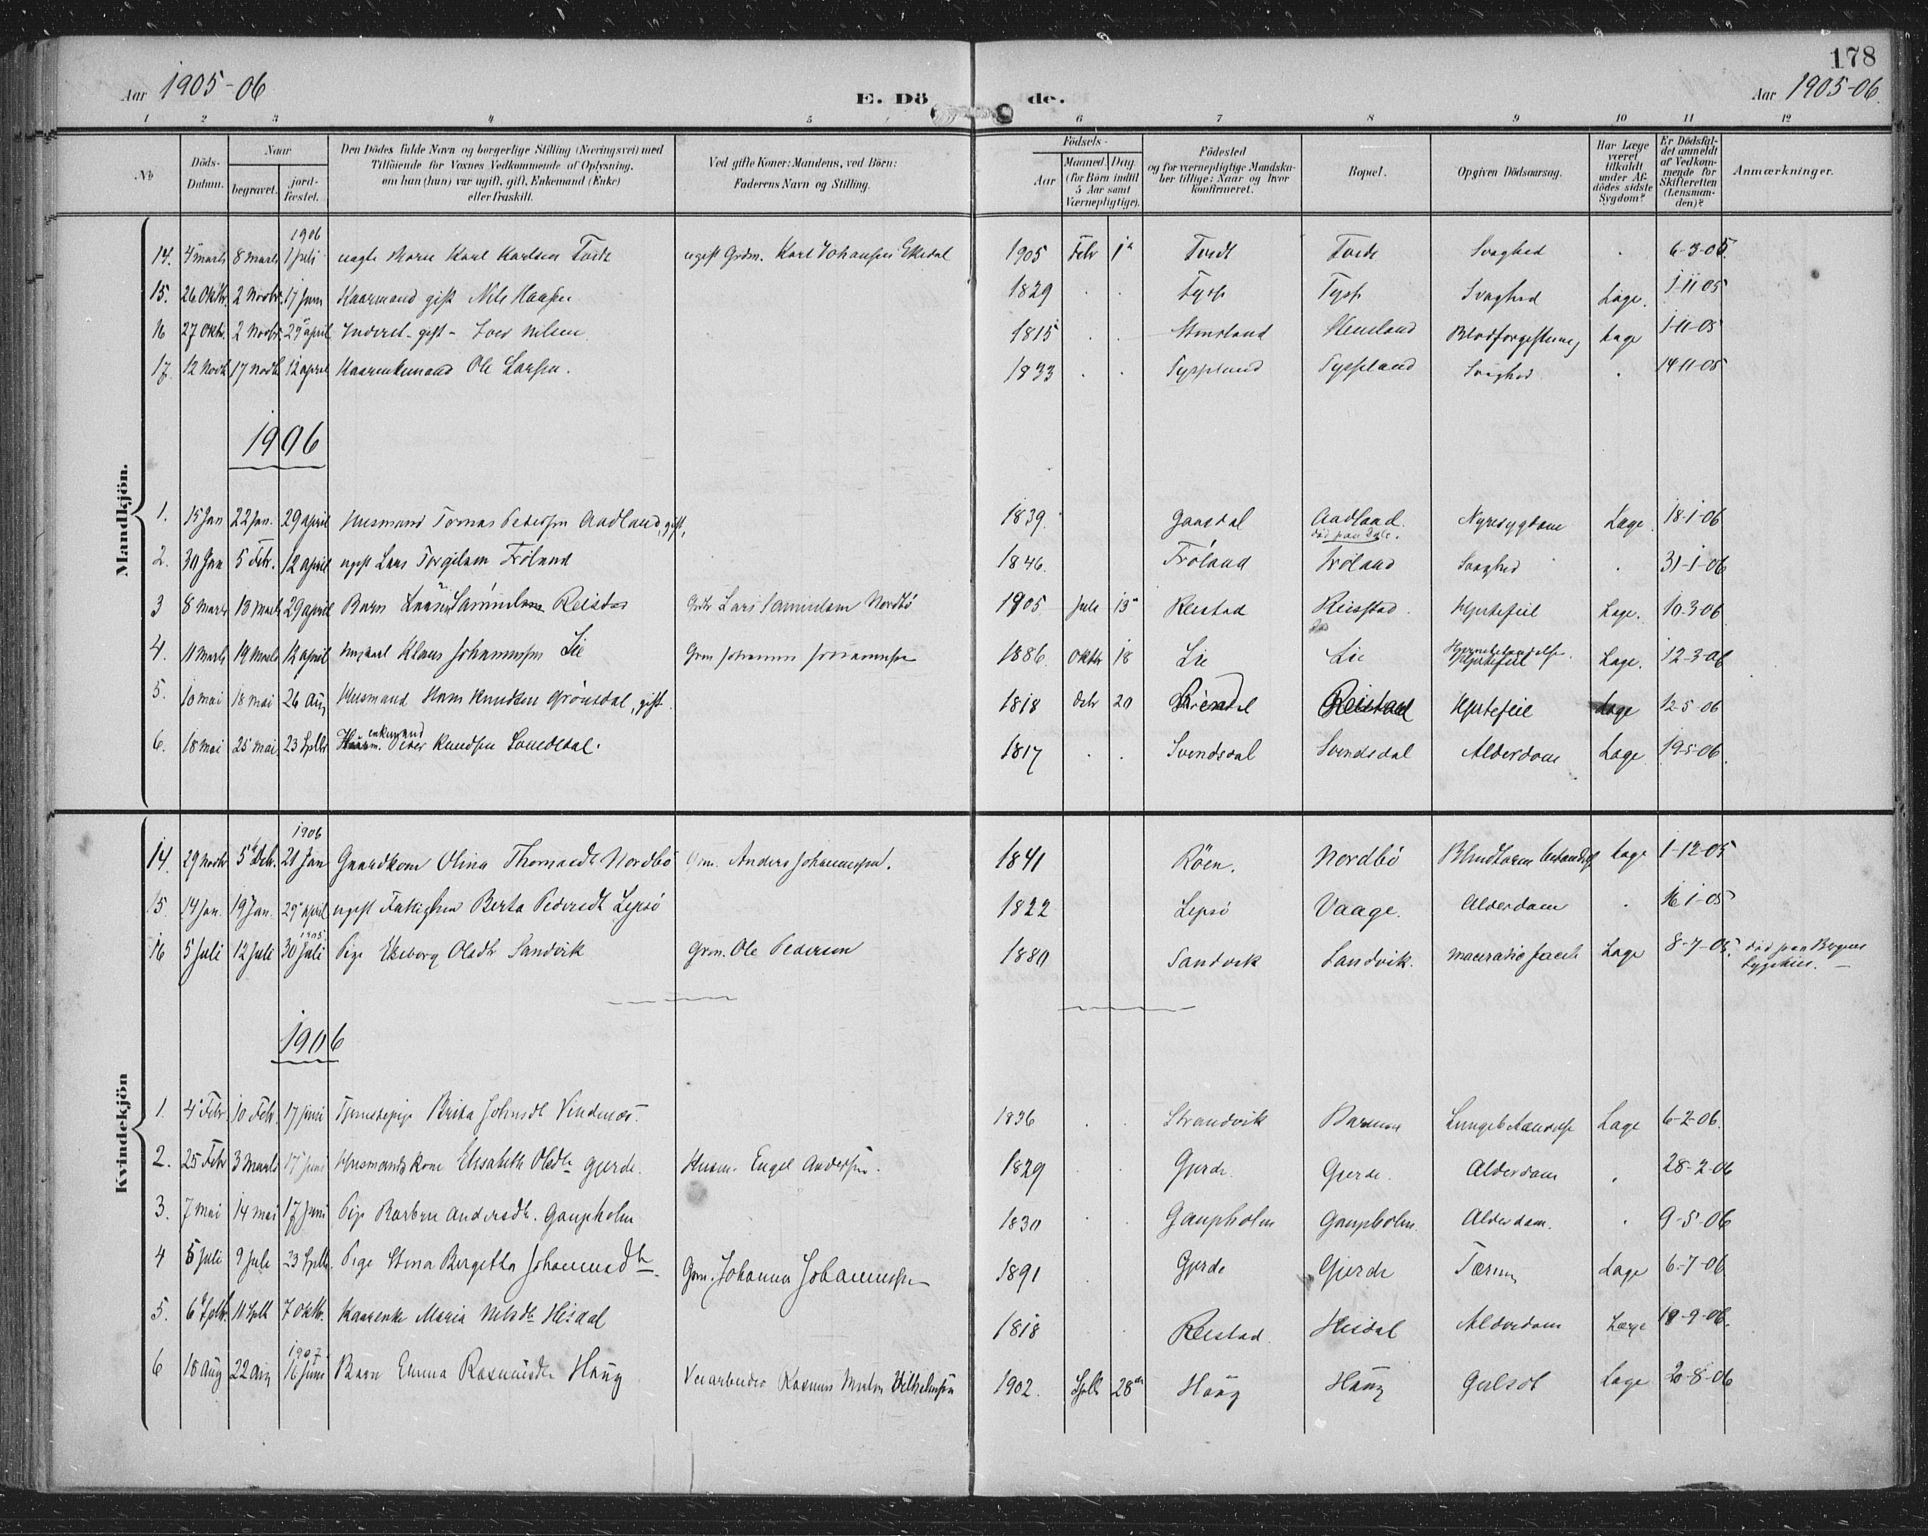 178
Aar 1905-06 E. Dö de. Aar 1905-06.
1 2 3 4 5 6 7 8 9 10 11 12
No
Döds-Datum.
Naar
begravet.
jord-fæstet.
Den Dödes fulde Navn og borgerlige Stilling (Næringsvei) med
Tilföiende for Voxnes Vedkommende af Oplysning,
om han (hun) var ugift, gift, Enkemand (Enke)
eller fraskilt.
Ved gifte Koner: Mandens, ved Börn:
Faderens Navn og Stilling.
Födsels-
Aar
Maaned Dag
(for Börn indtil
5 Aar samt
Værnepligtige).
Födested
og for værnepligtige Mandska-
ber tillige: Naar og hvor
konfirmeret.
Bopæl.
Opgiven Dödsaarsag.
Har Læge
været
tilkaldt
under Af-
dödes sidste
Sygdom?
Er Dödsfal-
det anmeldt
af Vedkom-
mende for
Skifteretten
(Lensman-
den)?
Anmærkninger.
Mandkjön.
1906
14. 4 marts 8 marts 1 juli Karl Karlsen Tvedt ugift Grdm. Karl Johansen Ekedal 1905 Febr 1 Tvedt Tvedt Svaghed . 6-3-05
15. 26 Oktbr. 2 Novbr. 17 Juni Kaarmand gift Nils Haasen 1829 . . Svaghed Læge. 1-11-05
16 27 Oktr. 2 Novbr. 29 april Inderst - gift - Iver Nilsen 1815 . . Stensland Stensland Blodforgiftning Læge 1-11-05
17. 12 Novb 17 Novb 12 april Kaarenkemand Ole Larsen. 1833 . . Tyssland Tyssland Svaghed . 14-11-05
1906
1. 15 Jan 22 Jan. 29 april Husmand Tomas Petersen Aadland, gift, 1839. Gaasdal Aadland. Nyresygdom Læge 18-1-06
død paa Dale.
2. 30 Jan 5 Febr. 12 april ugift Lars Torgilsen Fröland 1846. Fröland Fröland Svaghed . 31-1-06
3 8 marts 13 marts 29 april Barn Samuelsen Reistad Grbr Lars Samuelsen Nordbö 1905 Juli 13 Reistad Reistad. Hjertefeil Læge. 10-3-06
4. 11 marts 19 marts 12 april Ungkarl Klaus Johannessen Lie Grm Johannes Johannessen 1886. Oktbr 18 Lie Lie Hjertefeil Læge. 12-3-06
5. 10 mai 18 mai 26 Aug Husmand Hans Knudsen Grönsdal, gift. 1818 Debr 20 Reistad Hjertefeil Læge 12-5-06
6. 18 mai 25 mai 23 Septbr enkemand Peder Knudsen Svendsdal. 1817 . . Svendsdal Svendsdal Alderdom Læge 19-5-06
Kvindekjön
1906
14. 29 Novbr 5 Debr. 21 Jan Gaardkone Olina Thomasdtr Nordbö Grm. Anders Johannessen. 1841 Röen. Nordbö Læge 1-12-05
15. 14 Jan. 19 Jan. 29 april ugift Fattiglem Berta Pedersdtr Lepsö 1822 Lepsö Vaage. Alderdom . 16-1-05
1905
16 5 Juli 12 Juli 30 Juli Pige Olsdtr Sandvik Grm. Ole Pederson 1880 Sandvik Sandvik. Læge 8-7-05. død paa Bergens
Sygehus.
1906
1. 4 Febr. 10 Febr. 17 juni Tjenestepige Brita Johnsdtr Vindenæs. 1836 . . Strandvik Lungebetændelse Læge 6-2-06.
2. 25 Febr 3 Marts 17 juni Husmandskone Elisabeth Olsdtr Gjerde. Husm. Engel Andersen. 1829 . . Gjerde. Gjerde. Alderdom . 28-2-06
3. 7 mai 14 mai 17 Juni Pige Barbru Andersdtr. Gaupholm 1830 . . Gaupholm Gaupholm. Alderdom. . 9-5-06
4 5 juli 9 Juli 23 Septbr. Pige Stina Bergetta Johannesdtr. Grm. Johannes Johannessen 1891 Gjerde Gjerde Tæring Læge 6-7-06
5. 6 Septbr. 11 Septb 7 Oktbr. Kaarenke Maria Nilsdtr Heisdal 1818 . . Reistad. Heisdal Alderdom Læge 19-9-06.
1907.
6 18 Aug 22 Aug 16 Juni Barn Emma Rasmusdtr Haug Veiarbeider Rasmus Vilhelmsen 1902. Septb 28 Haug Haug Gulsot Læge 20-8-06